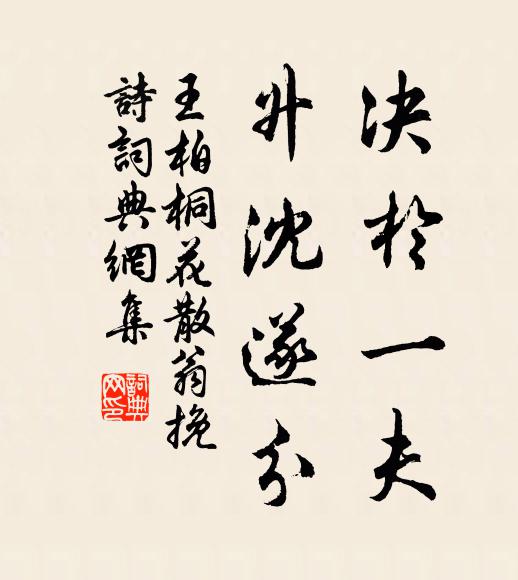 决於一夫
升沈遂分
王柏桐花散翁挽
詩詞典網集
詞典網印